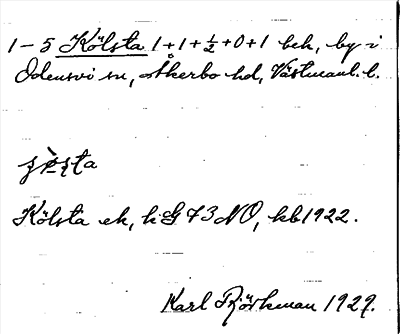 1-5 Kölsta 1+1+½+0+1 beh, by i
Odensvi sn, Åkerbo hd, Västmanl. l.
Kölsta ek, h G 43 NO, kb 1922.
Karl Björkman 1929.